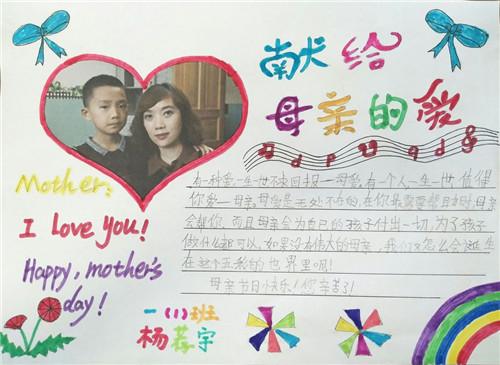 献给
母亲的爱
Mother:
I love you!
Happy, mother's
day!
有一种爱一生一世不求回报——母爱,有一个人一生一世值得
你爱——母亲,母爱是无处不在的,在你最需要帮助时,母亲
会帮你,而且母亲会为自己的孩子付出一切,为了孩子
做什么都可以,如果没有伟大的母亲,我们又怎么会诞生
在这个五彩的世界里呢!
母亲节日快乐!您辛苦了!
一(1)班
杨荐宇